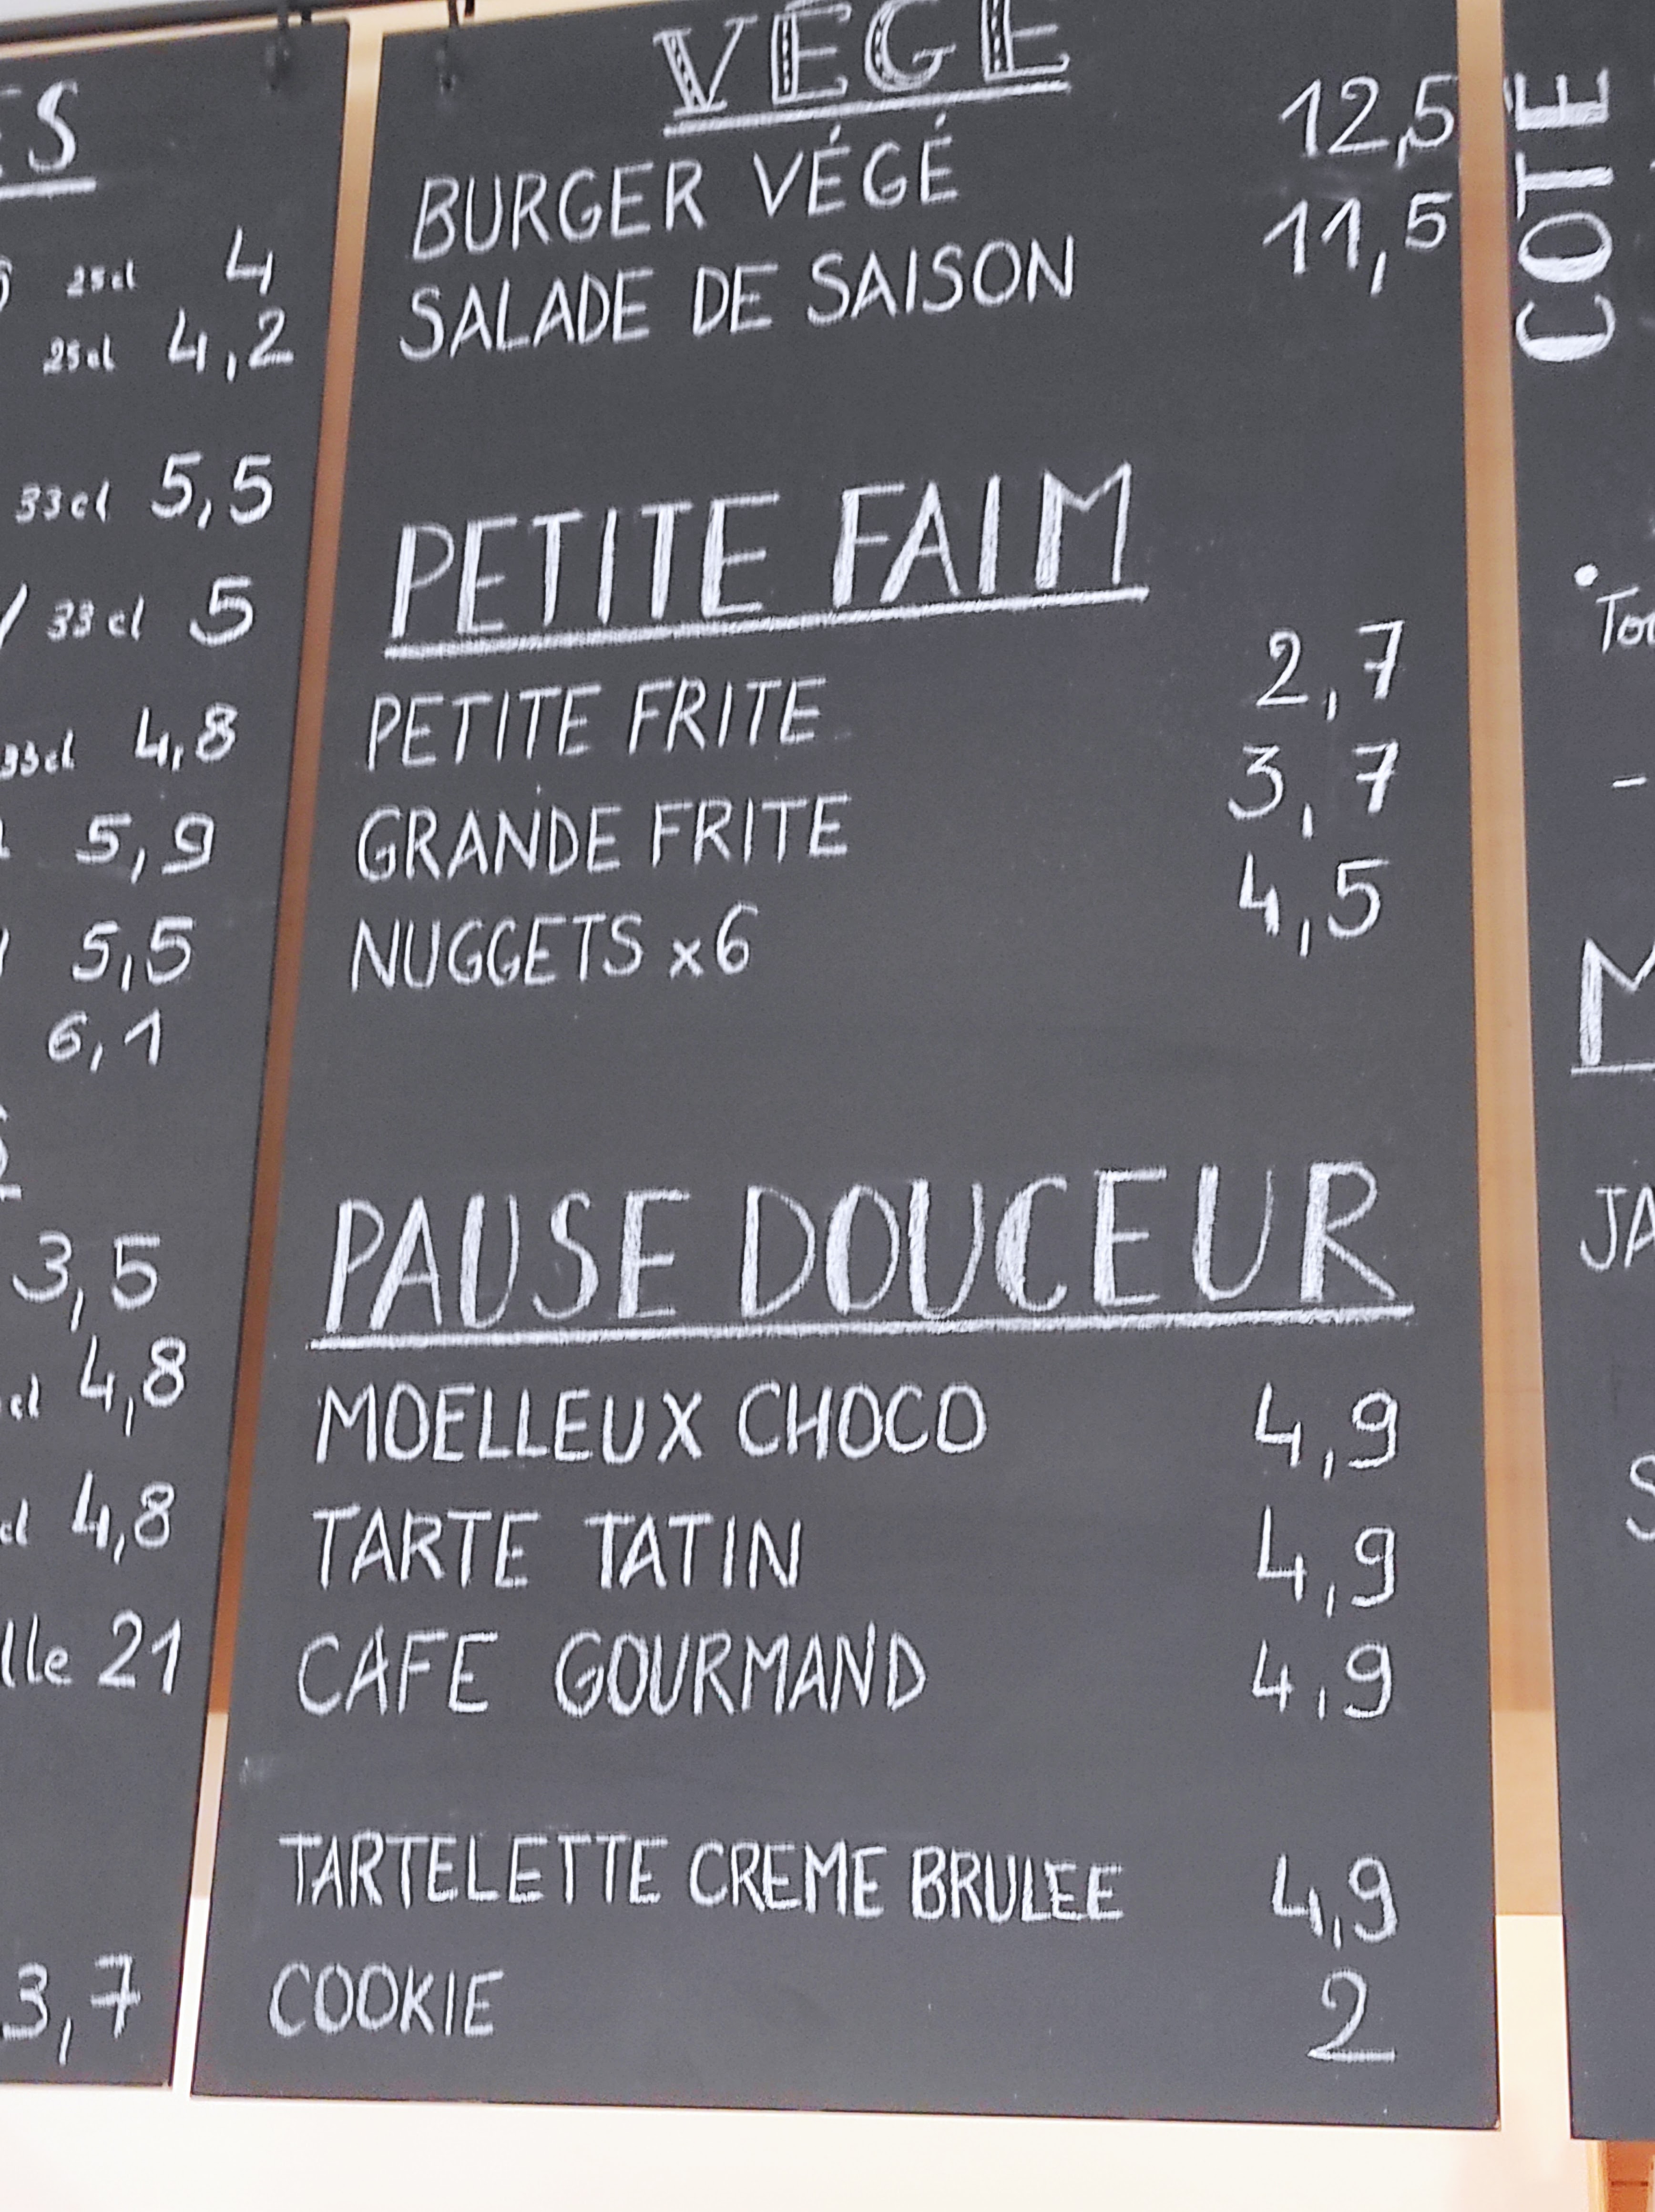 ES
25cl 4
25cl 4,2
33cl 5,5
33cl 5
33cl 4,8
5,9
5,5
6,1
3,5
cl 4,8
cl 4,8
lle 21
3,7
VÉGÉ
BURGER VÉGÉ 12,5
SALADE DE SAISON 11,5
PETITE FAIM
PETITE FRITE 2,7
GRANDE FRITE 3,7
NUGGETS x6 4,5
PAUSE DOUCEUR
MOELLEUX CHOCO 4,9
TARTE TATIN 4,9
CAFE GOURMAND 4,9
TARTELETTE CREME BRULEE 4,9
COOKIE 2
COTÉ
• Tou
-
M
JA
S